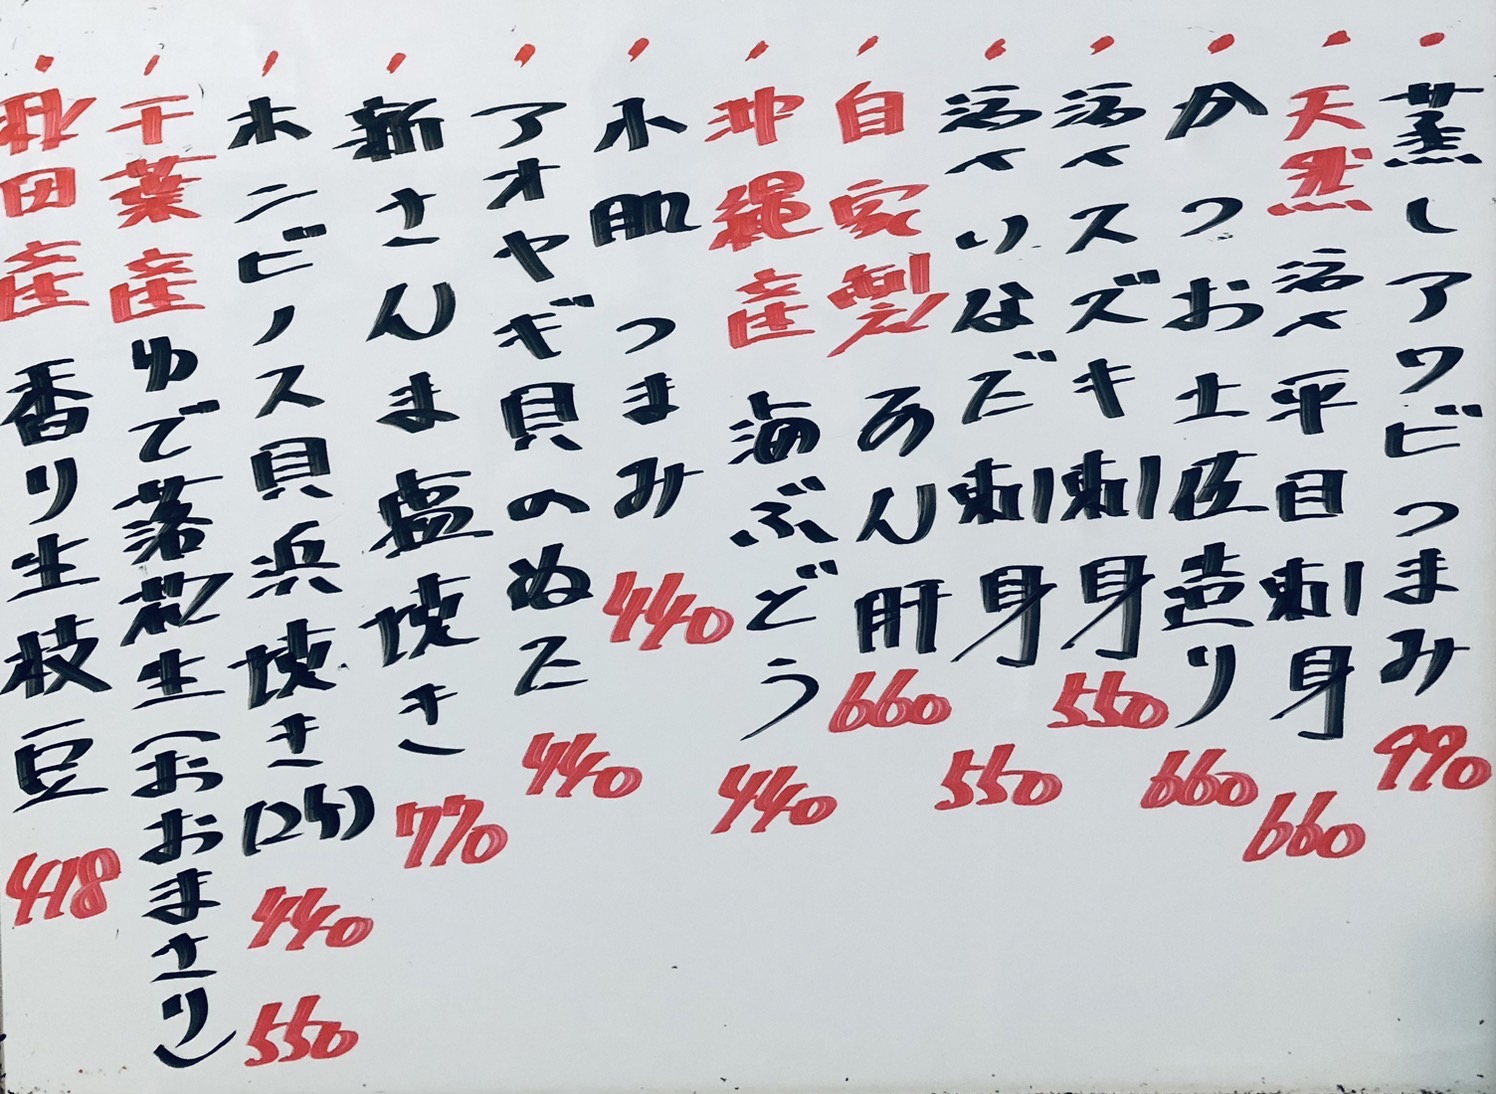 ・蒸しアワビつまみ 990
・天然活〆平目刺身 660
・かつお土佐造り 660
・活〆スズキ刺身 550
・活〆いなだ刺身 550
・自家製あん肝 660
・沖縄産海ぶどう 440
・小肌つまみ 440
・アオヤギ貝のぬた 440
・新さんま塩焼き 770
・ホンビノス貝浜焼き(2ケ) 440
・千葉産ゆで落花生(おおまさり) 550
・秋田産香り生枝豆 418